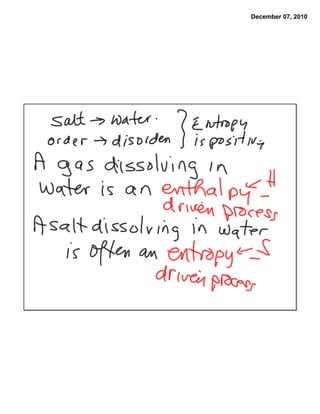 December 07, 2010
Salt → Water. } Entropy
order → disorder } is positive
A gas dissolving in
water is an enthalpy ← H
driven process
A salt dissolving in water
is often an entropy ← S
driven process